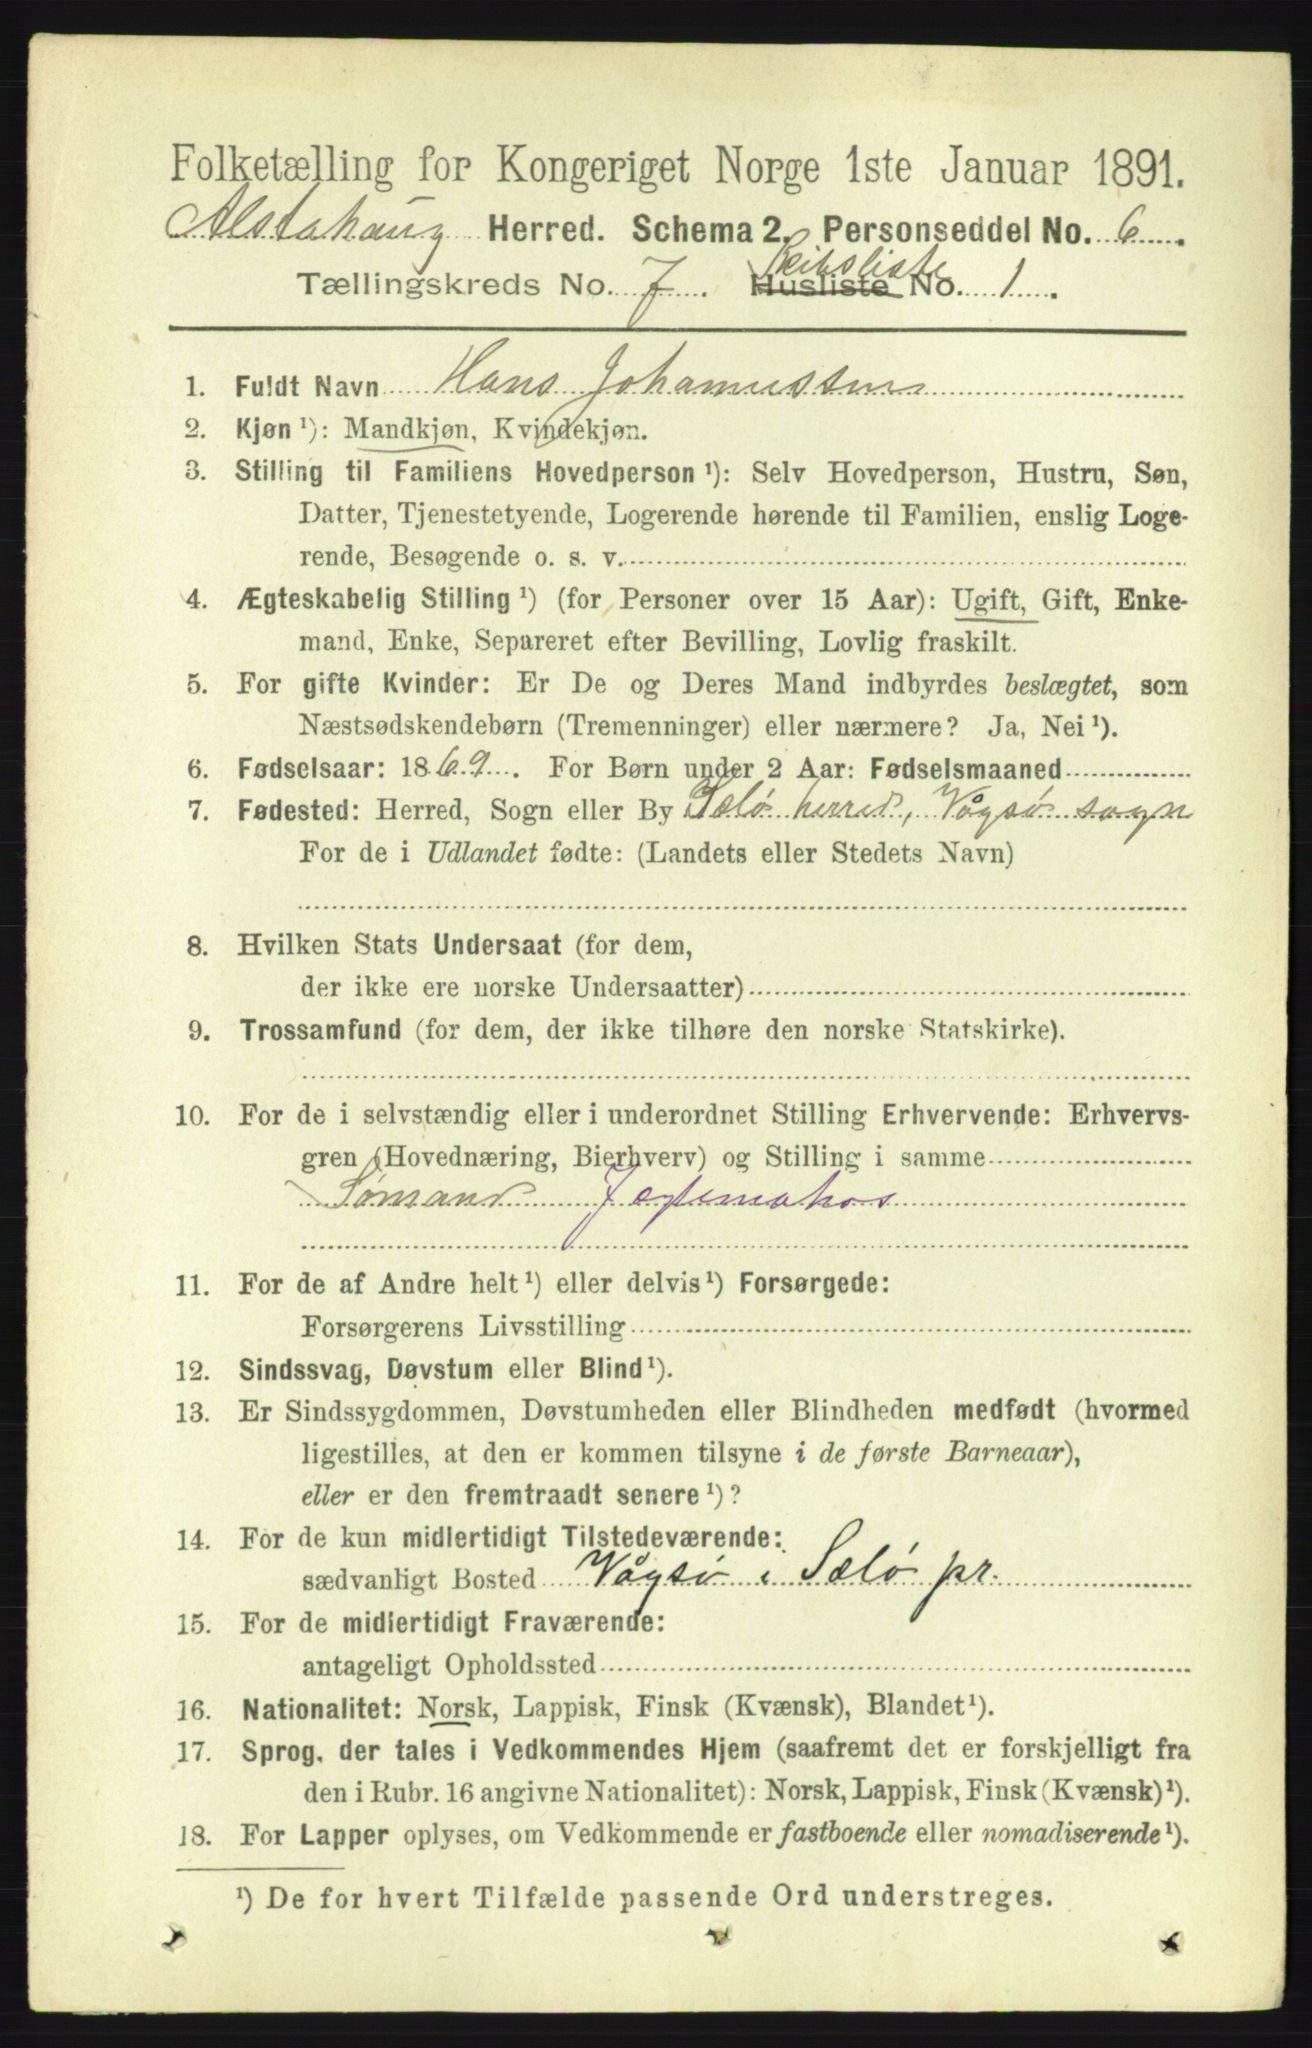 Folketælling for Kongeriget Norge 1ste Januar 1891.
Alstahaug Herred. Schema 2. Personseddel No. 6.
Skibsliste
Tællingskreds No. 7. Husliste No. 1.
1. Fuldt Navn Hans Johannessen
2. Kjøn ¹): Mandkjøn, Kvindekjøn.
3. Stilling til Familiens Hovedperson ¹): Selv Hovedperson, Hustru, Søn,
Datter, Tjenestetyende, Logerende hørende til Familien, enslig Loge-
rende, Besøgende o. s. v.
4. Ægteskabelig Stilling ¹) (for Personer over 15 Aar): Ugift, Gift, Enke-
mand, Enke, Separeret efter Bevilling, Lovlig fraskilt.
5. For gifte Kvinder: Er De og Deres Mand indbyrdes beslægtet, som
Næstsødskendebørn (Tremenninger) eller nærmere? Ja, Nei ¹).
6. Fødselsaar: 1869. For Børn under 2 Aar: Fødselsmaaned
7. Fødested: Herred, Sogn eller By Selø herred, Vågsø sogn
For de i Udlandet fødte: (Landets eller Stedets Navn)
8. Hvilken Stats Undersaat (for dem,
der ikke ere norske Undersaatter)
9. Trossamfund (for dem, der ikke tilhøre den norske Statskirke).
10. For de i selvstændig eller i underordnet Stilling Erhvervende: Erhvervs-
gren (Hovednæring, Bierhverv) og Stilling i samme
Sømand Jægtematros
11. For de af Andre helt ¹) eller delvis ¹) Forsørgede:
Forsørgerens Livsstilling
12. Sindssvag, Døvstum eller Blind ¹).
13. Er Sindssygdommen, Døvstumheden eller Blindheden medfødt (hvormed
ligestilles, at den er kommen tilsyne i de første Barneaar),
eller er den fremtraadt senere ¹)?
14. For de kun midlertidigt Tilstedeværende:
sædvanligt Bosted Vågsø i Selø pr.
15. For de midlertidigt Fraværende:
antageligt Opholdssted
16. Nationalitet: Norsk, Lappisk, Finsk (Kvænsk), Blandet ¹).
17. Sprog, der tales i Vedkommendes Hjem (saafremt det er forskjelligt fra
den i Rubr. 16 angivne Nationalitet): Norsk, Lappisk, Finsk (Kvænsk) ¹).
18. For Lapper oplyses, om Vedkommende er fastboende eller nomadiserende ¹).
¹) De for hvert Tilfælde passende Ord understreges.